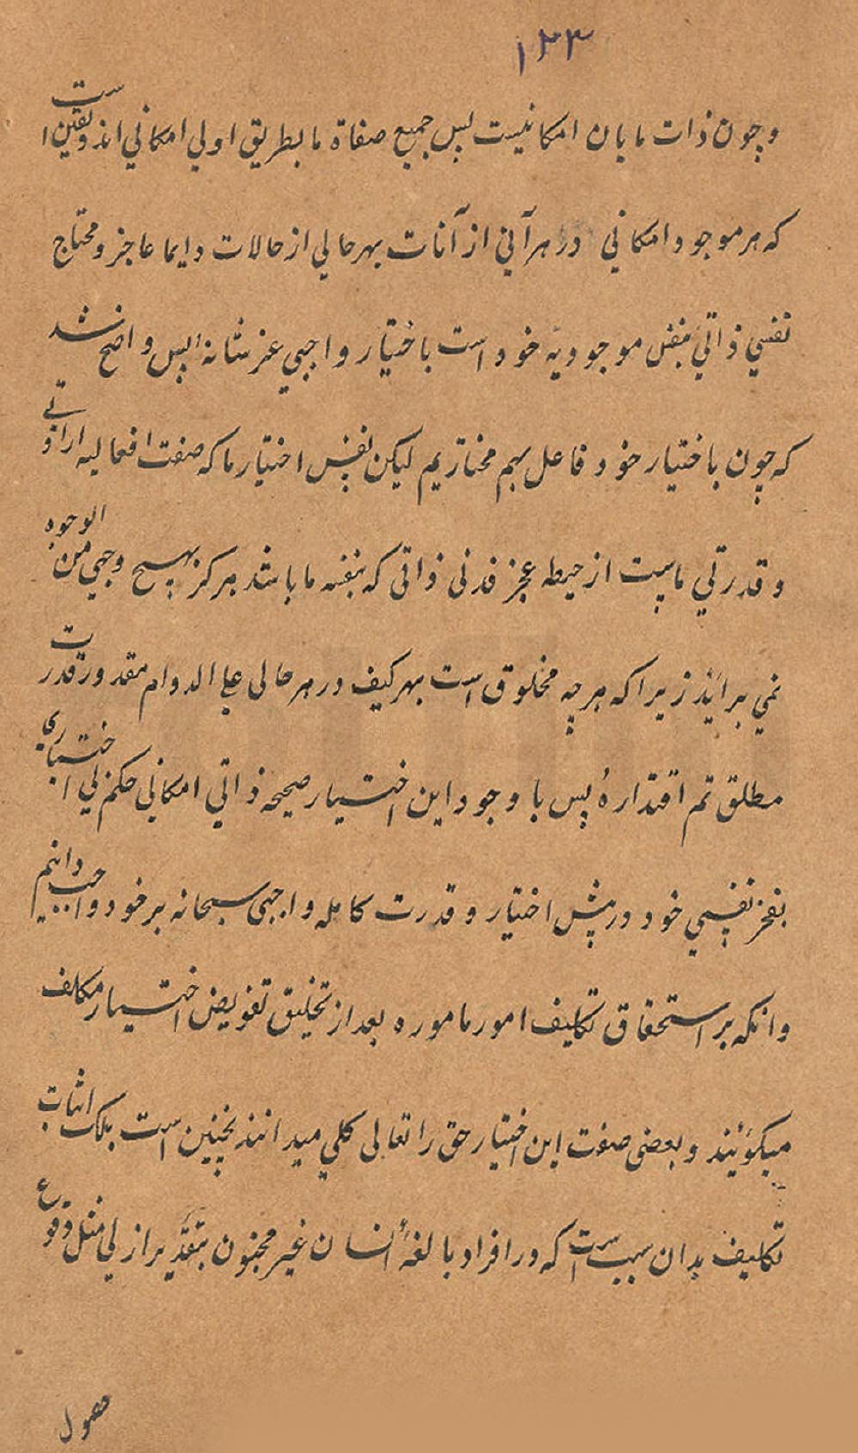 ١٢٣
وچون ذات مایان امکانیست پس جمیع صفاة ما بطریق اولی امکانی اند و یقین است
که هر موجود امکانی در هر آنی از آنات بهر حالی از حالات دایما عاجز و محتاج
نفسی ذاتی بنفس موجودیه خود است باختیار واجبی عز شانه پس واضح شد
که چون باختیار خود فاعل هم مختاریم لیکن نفس اختیار ما که صفت افعالیه اراتی و
و قدرتی ماست از حیطه عجز ذاتی که بنفسه ما باشد هرگز بهیچ وجهی من الوجوه
نمی براید زیرا که هرچه مخلوق است بهر کیف در هر حالی علی الدوام مقدور قدرت
مطلق تم اقتداره پس با وجود این اختیار صحیحه ذاتی امکانی حکم اختیاری
بعجز نفسی خود در پیش اختیار و قدرت کامله واجبی سبحانه بر خود واجب دانیم
وانکه بر استحقاق تکلیف امور ماموره بعد از تخلیق تفویض اختیار مکلف
میکویند و بعضی صفت این اختیار حق را تعالی کلی میدانند نچنین است بلک اثبات
تکلیف بدان سبب است که در افراد بالغهٔ انسان غیر مجنون بتقدیر ازلی مثل وقوع
حصول